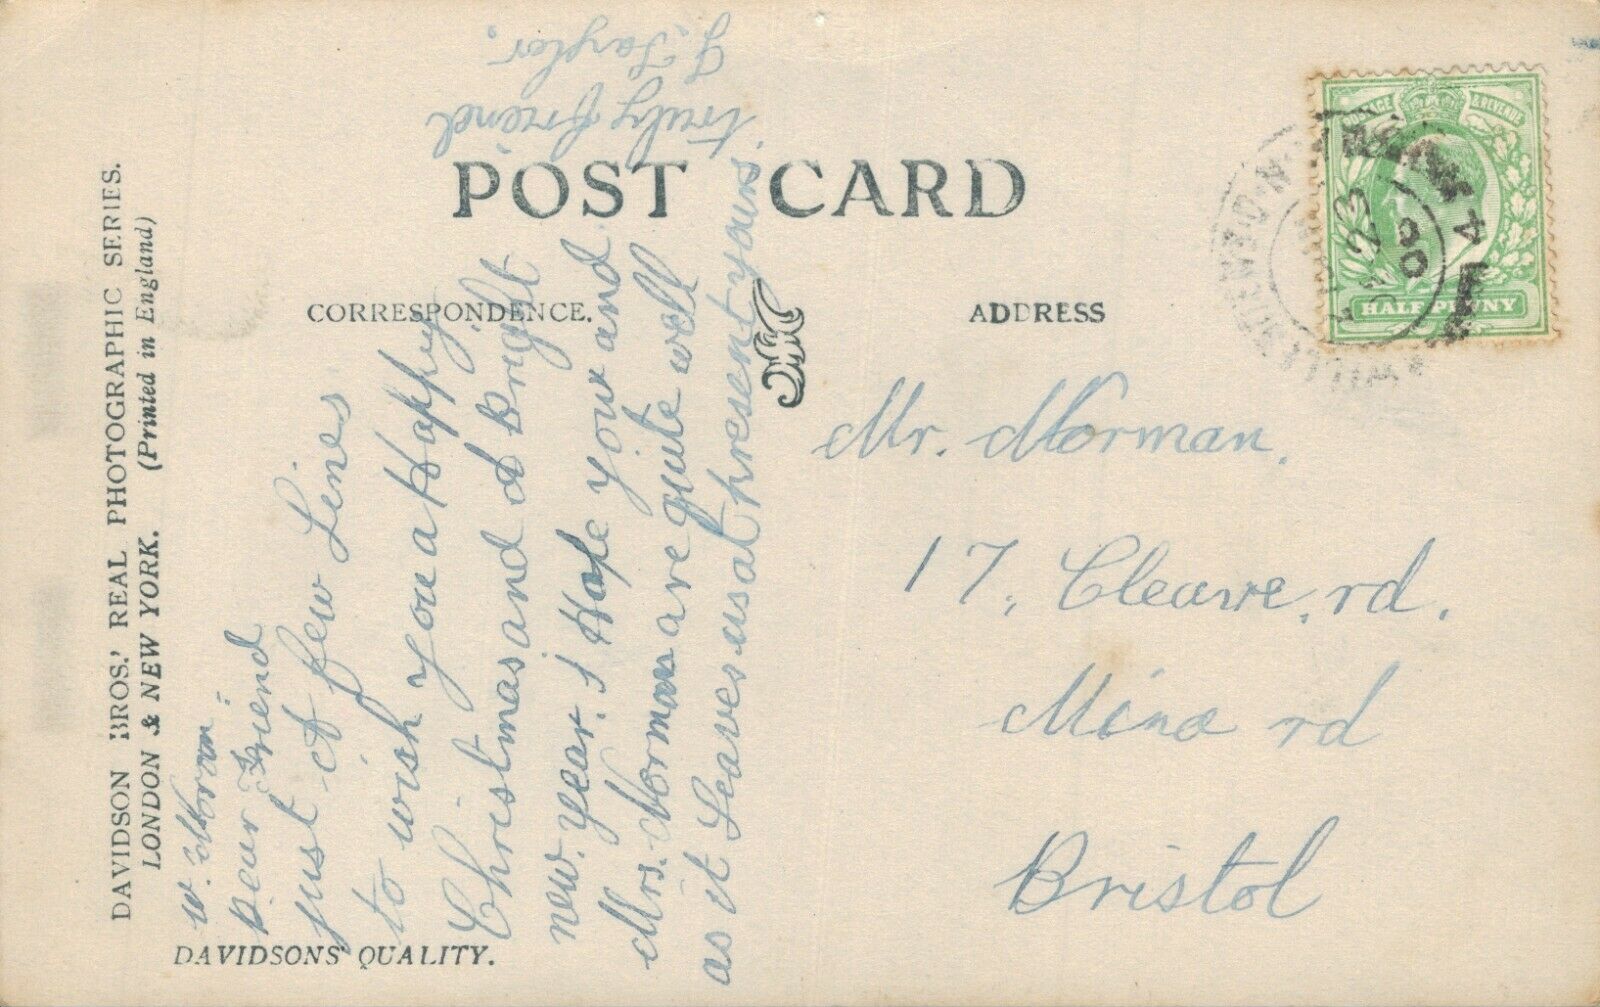 DAVIDSON BROS.' REAL PHOTOGRAPHIC SERIES.
LONDON & NEW YORK. (Printed in England)
POST CARD
CORRESPONDENCE.
ADDRESS
W. Norman:
Dear Friend
just a few Lines
to wish you a Happy
Christmas and a Bright
new year. I Hope you and
Mrs. Norman are quite well
as it Leaves us at present yours
truly friend
J. Taylor.
Mr. Norman.
17, Cleave, rd.
Mina rd
Bristol
DAVIDSONS' QUALITY.
POSTAGE & REVENUE
HALFPENNY
23
08